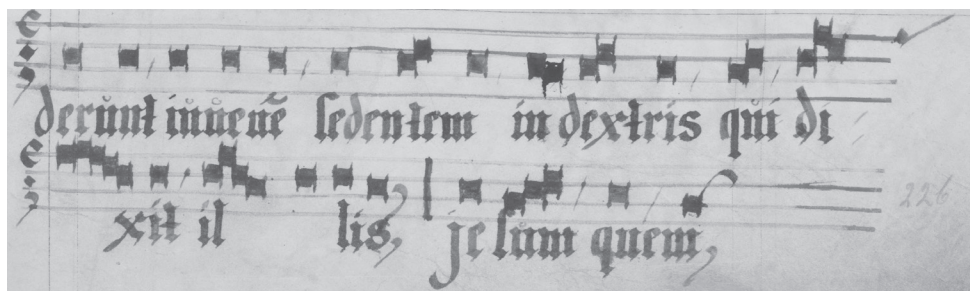 derůnt iůůenē sedentem in dextris qůi di
xit il lis, jesům quem,
226